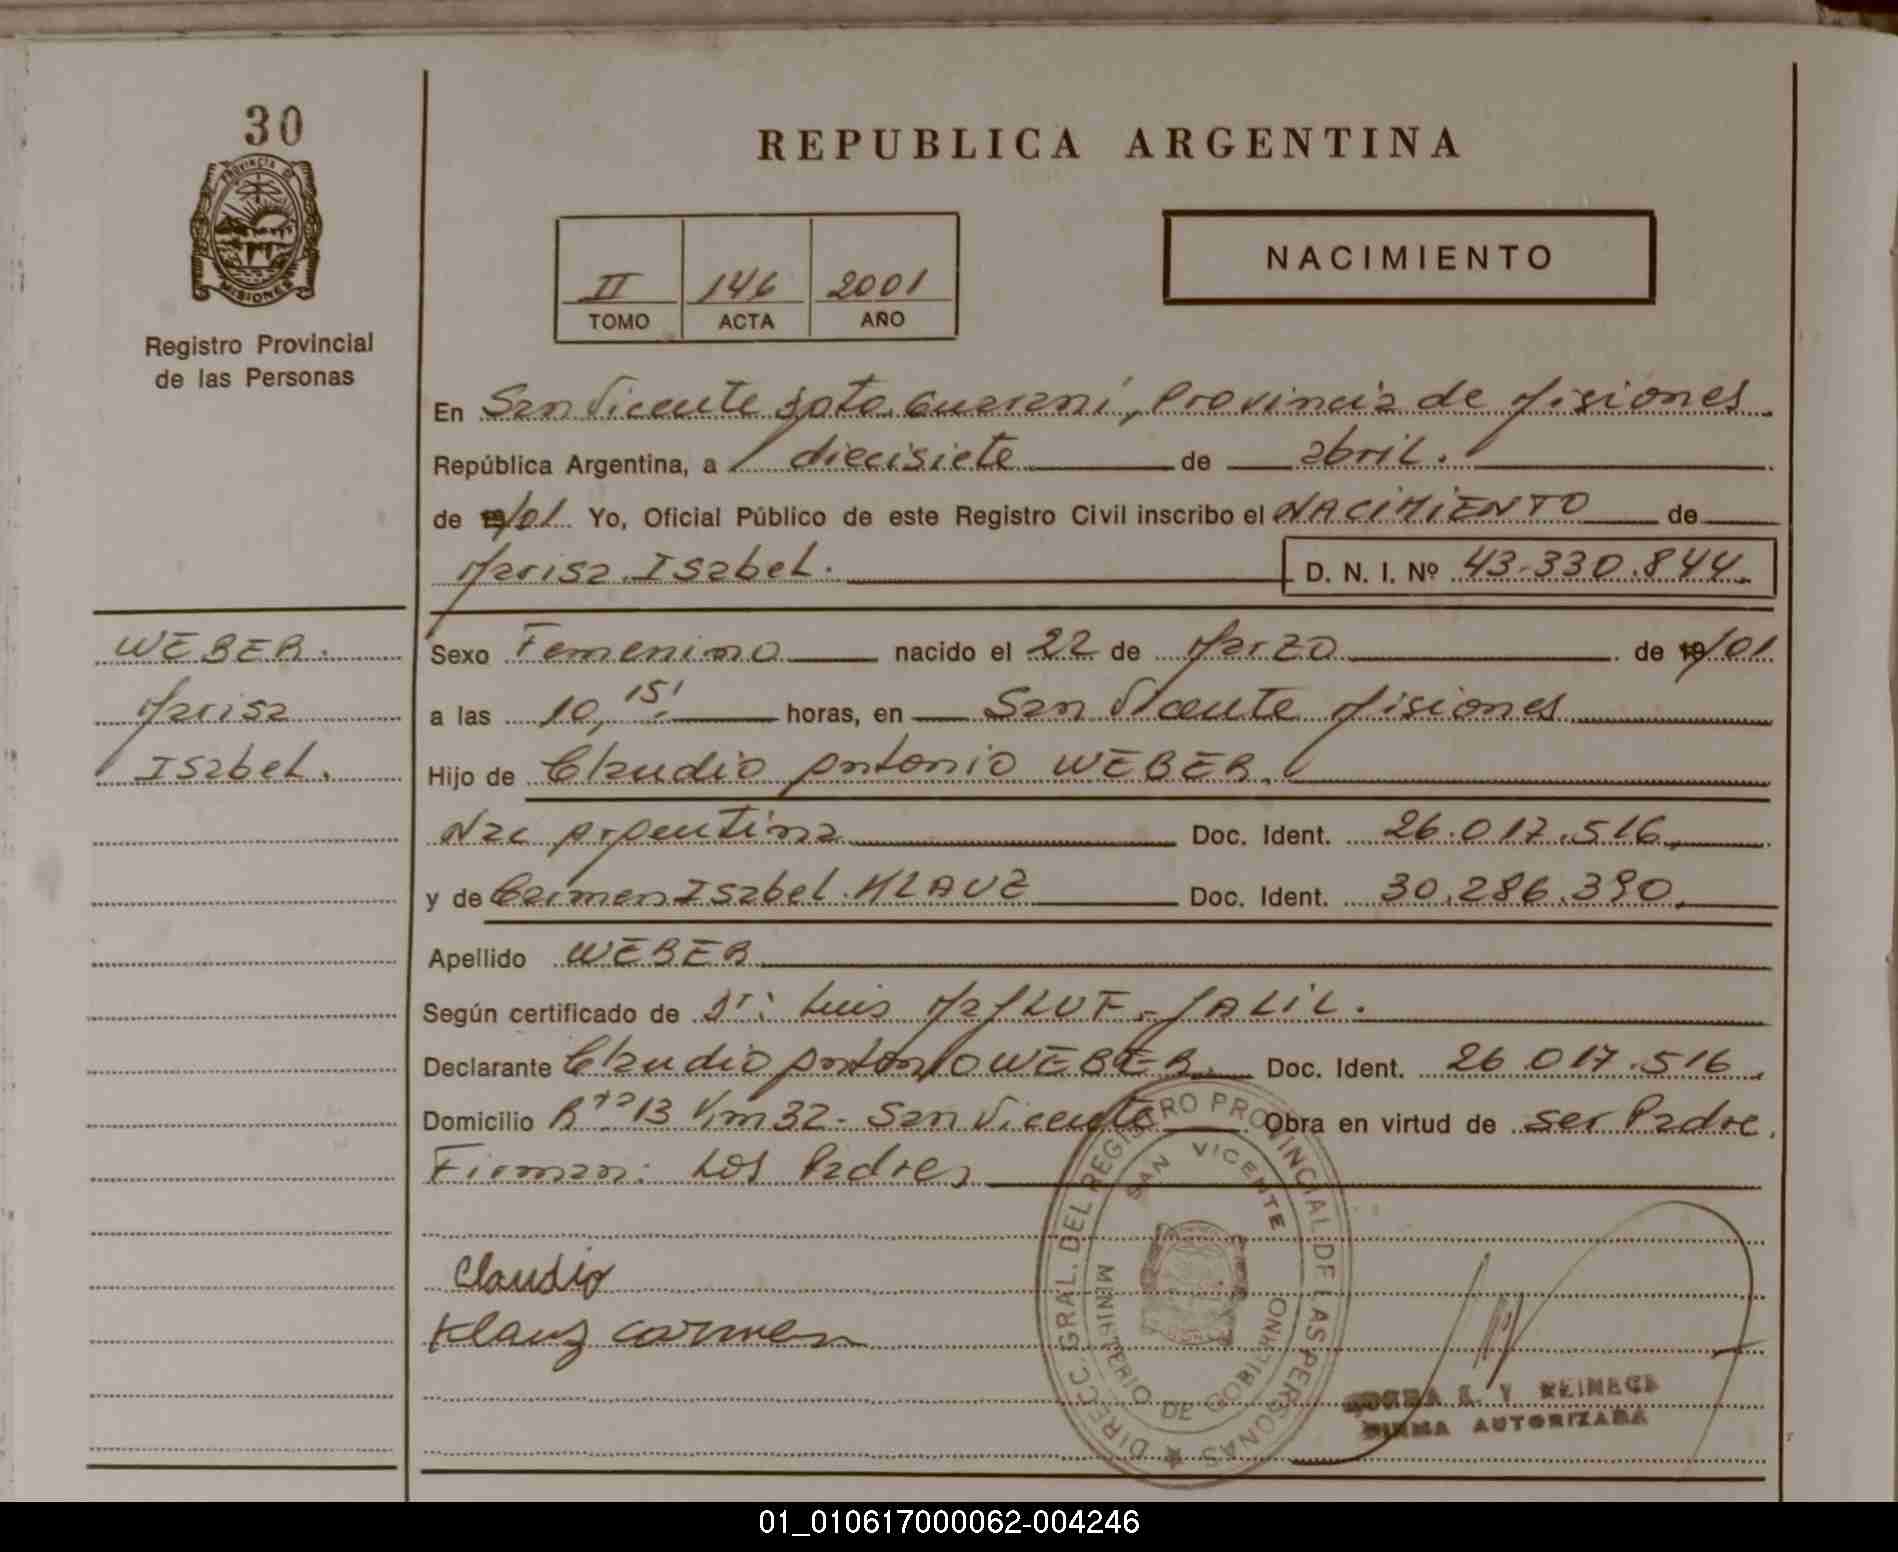 30
REPUBLICA ARGENTINA
PROVINCIA DE MISIONES
Registro Provincial
de las Personas
II 146 2001
TOMO ACTA AÑO
NACIMIENTO
En San Vicente Dpto. Guaraní, Provincia de Misiones
República Argentina, a diecisiete de abril.
de 19/01 Yo, Oficial Público de este Registro Civil inscribo el NACIMIENTO de
Marisa Isabel. D. N. I. Nº 43.330.844.
WEBER.
Marisa
Isabel.
Sexo Femenino nacido el 22 de Marzo de 19/01
a las 10,15' horas, en San Vicente Misiones
Hijo de Claudio Antonio WEBER.
Nac Argentina Doc. Ident. 26.017.516
y de Carmen Isabel KLAUZ Doc. Ident. 30.286.390.
Apellido WEBER
Según certificado de Dr: Luis JALIL.
Declarante Claudio Antonio WEBER. Doc. Ident. 26.017.516.
Domicilio Rta 13 Km 32 - San Vicente Obra en virtud de ser Padre.
Firman: Los Padres
Claudio
Klauz Carmen
DIRECC. GRAL. DEL REGISTRO PROVINCIAL DE LAS PERSONAS
SAN VICENTE
MINISTERIO DE GOBIERNO
FIRMA AUTORIZADA
01_010617000062-004246